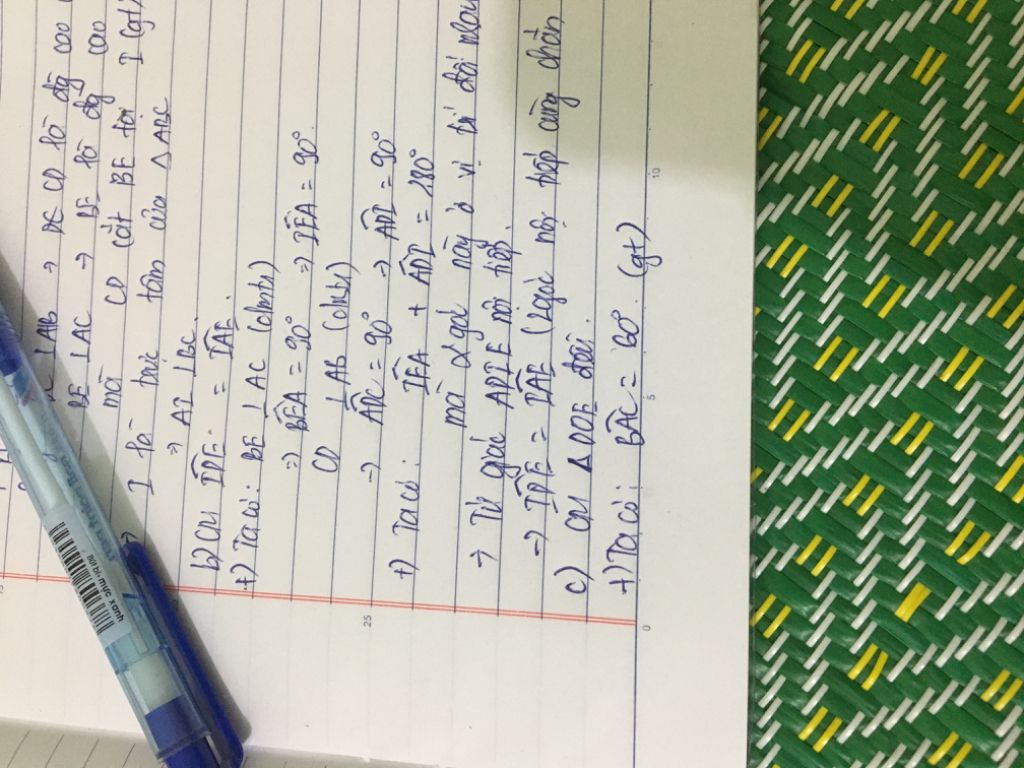 ⊥ AB → DC CD là đg cao
BE ⊥ AC → BE là đg cao
mà CD cắt BE tại I (gt)
→ I là trực tâm của △ ABC
⇒ AI ⊥ BC.
b) CM IDE = IAE.
+) Ta có: BE ⊥ AC (cmtr)
⇒ BEA = 90° ⇒ IEA = 90°.
CD ⊥ AB (cmtr)
→ ADC = 90° → ADI = 90°
+) Ta có: IEA + ADI = 180°
mà 2 góc này ở vị trí đối nhau
→ Tứ giác ADIE nội tiếp.
→ IDE = IAE (2 góc nội tiếp cùng chắn
c) CM △ DOE đều.
+) Ta có: BAC = 60° (gt)
Bút bi mực xanh
25
0
5
10